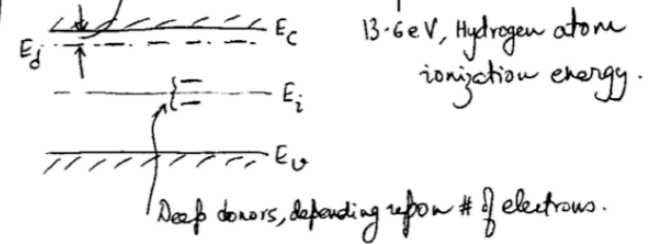 E_c
13.6eV, Hydrogen atom
E_d
ionization energy.
E_i
E_v
Deep donors, depending upon # of electrons.